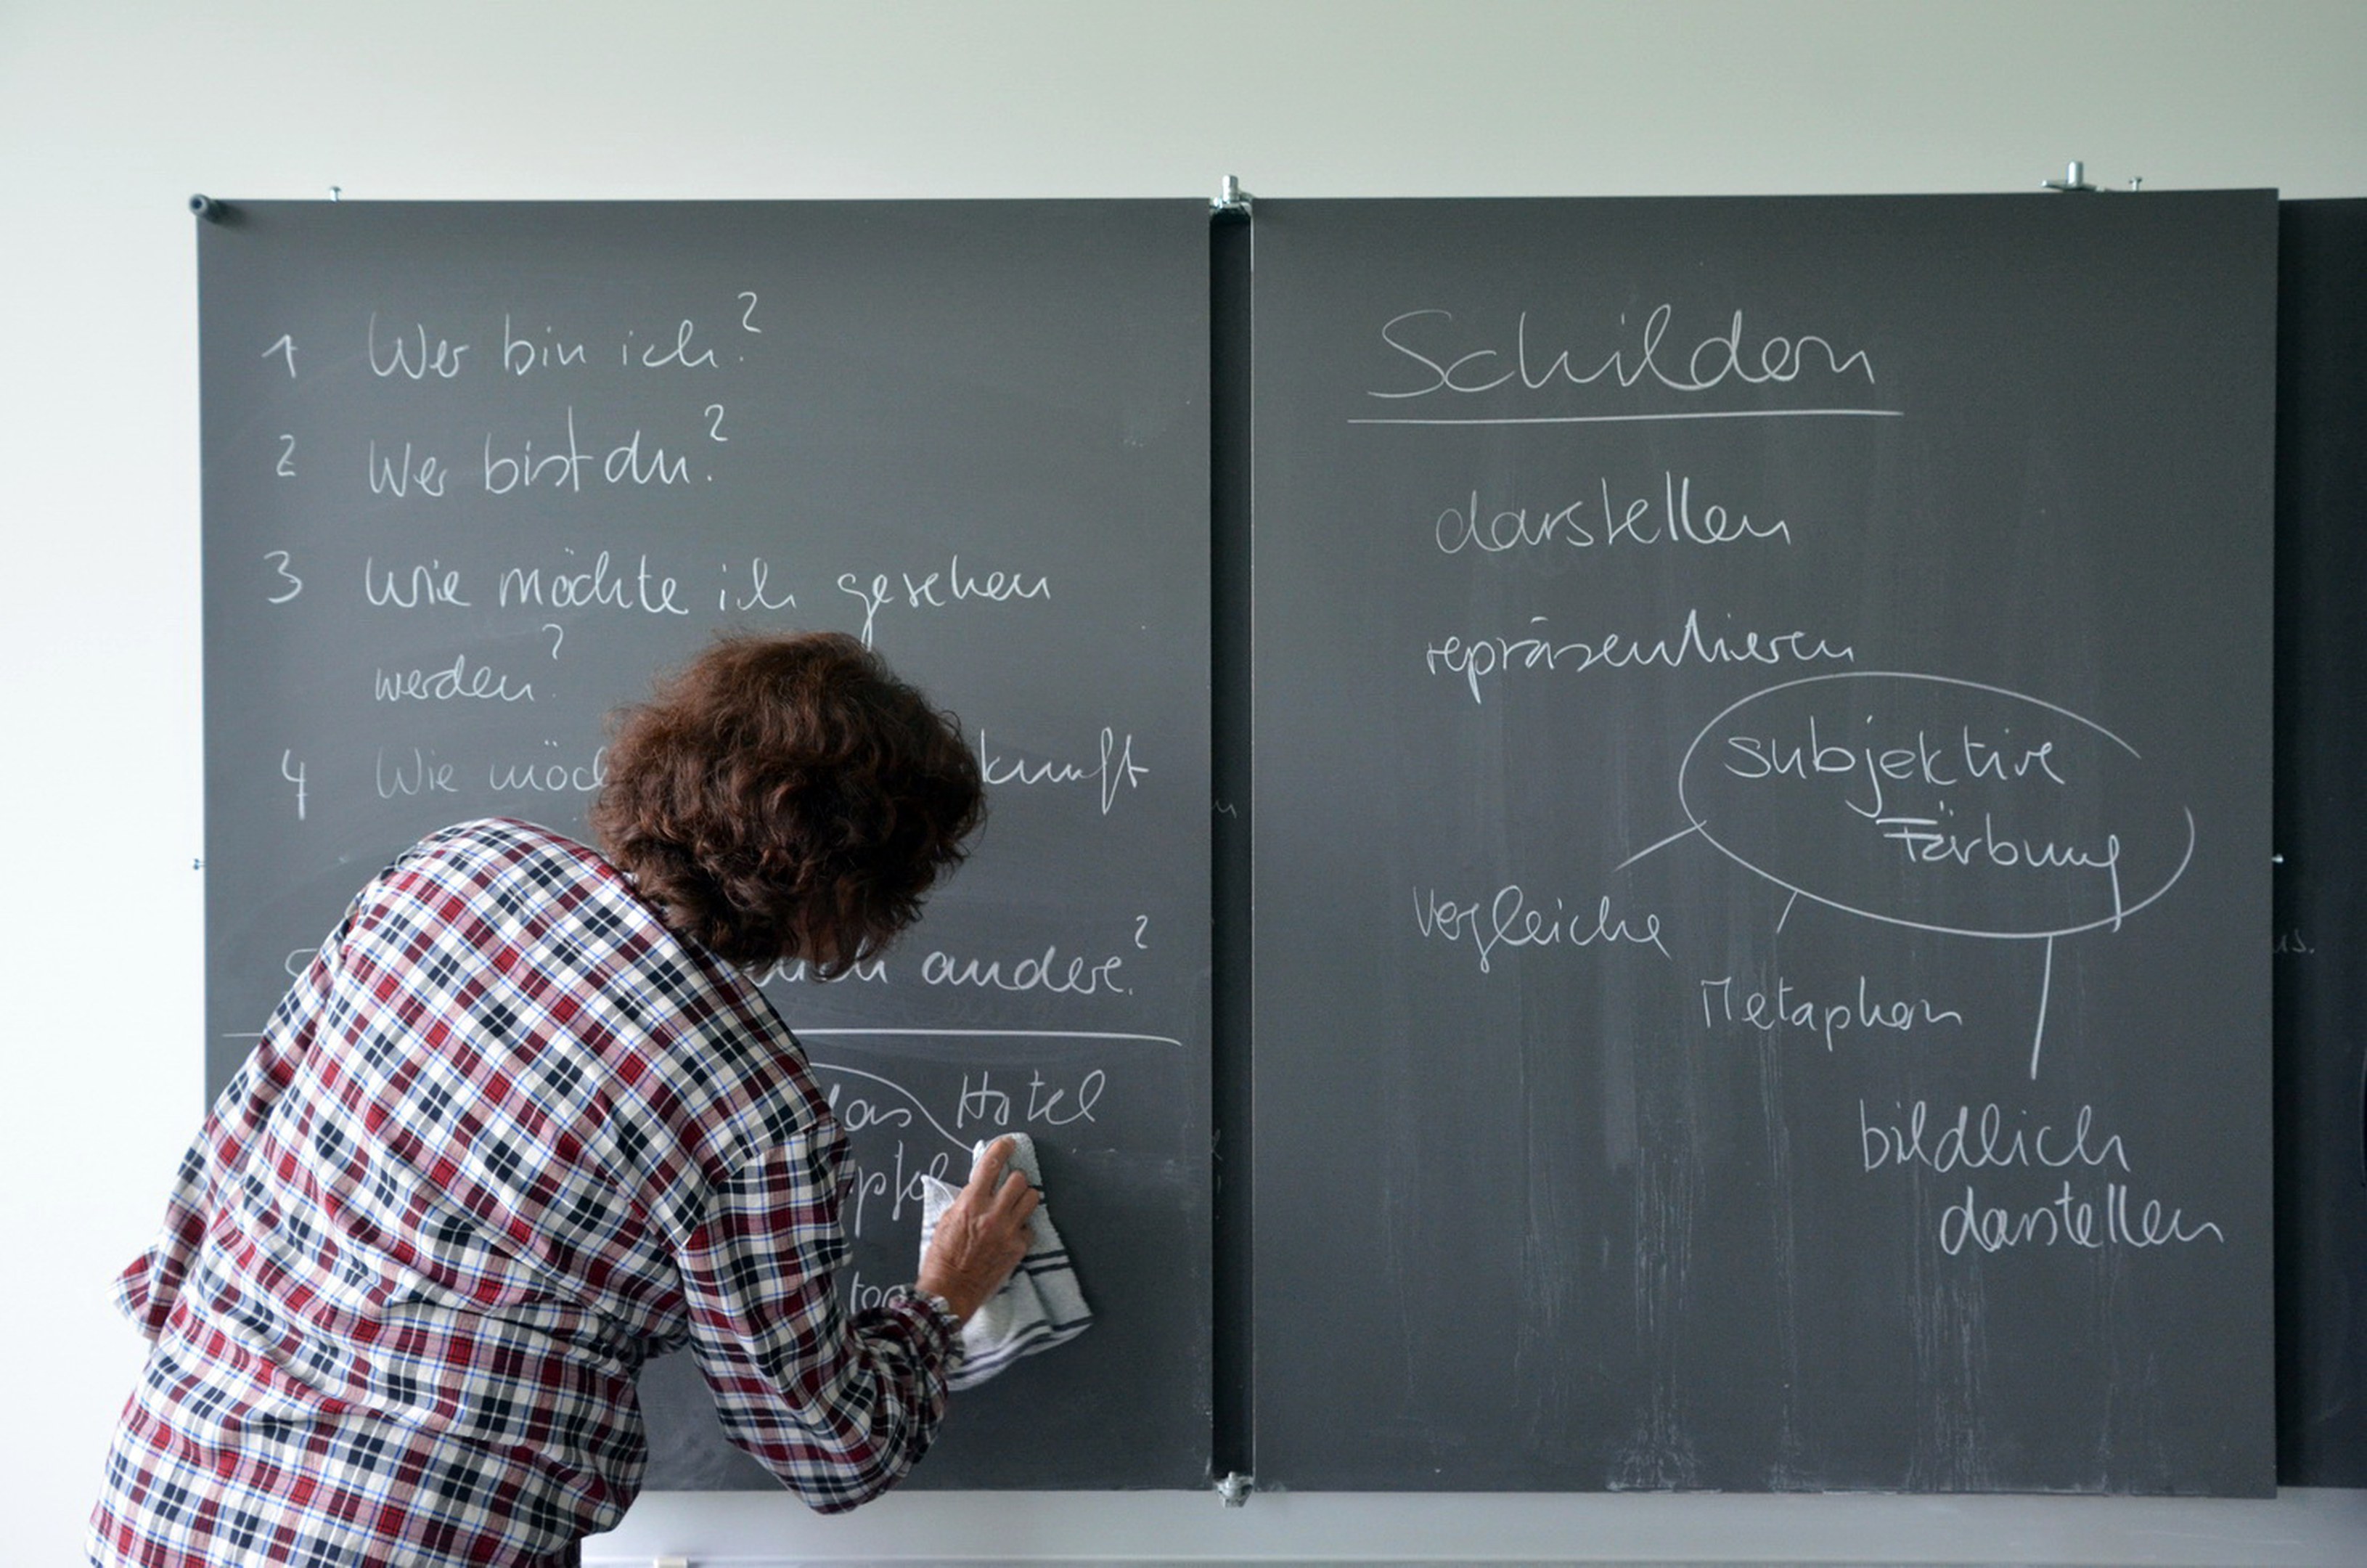 1 Wer bin ich?
2 Wer bist du?
3 Wie möchte ich gesehen
werden?
4 Wie
andere?
das Hotel
Schildern
darstellen
repräsentieren
subjektive
Färbung
Vergleiche
Metaphern
bildlich
darstellen